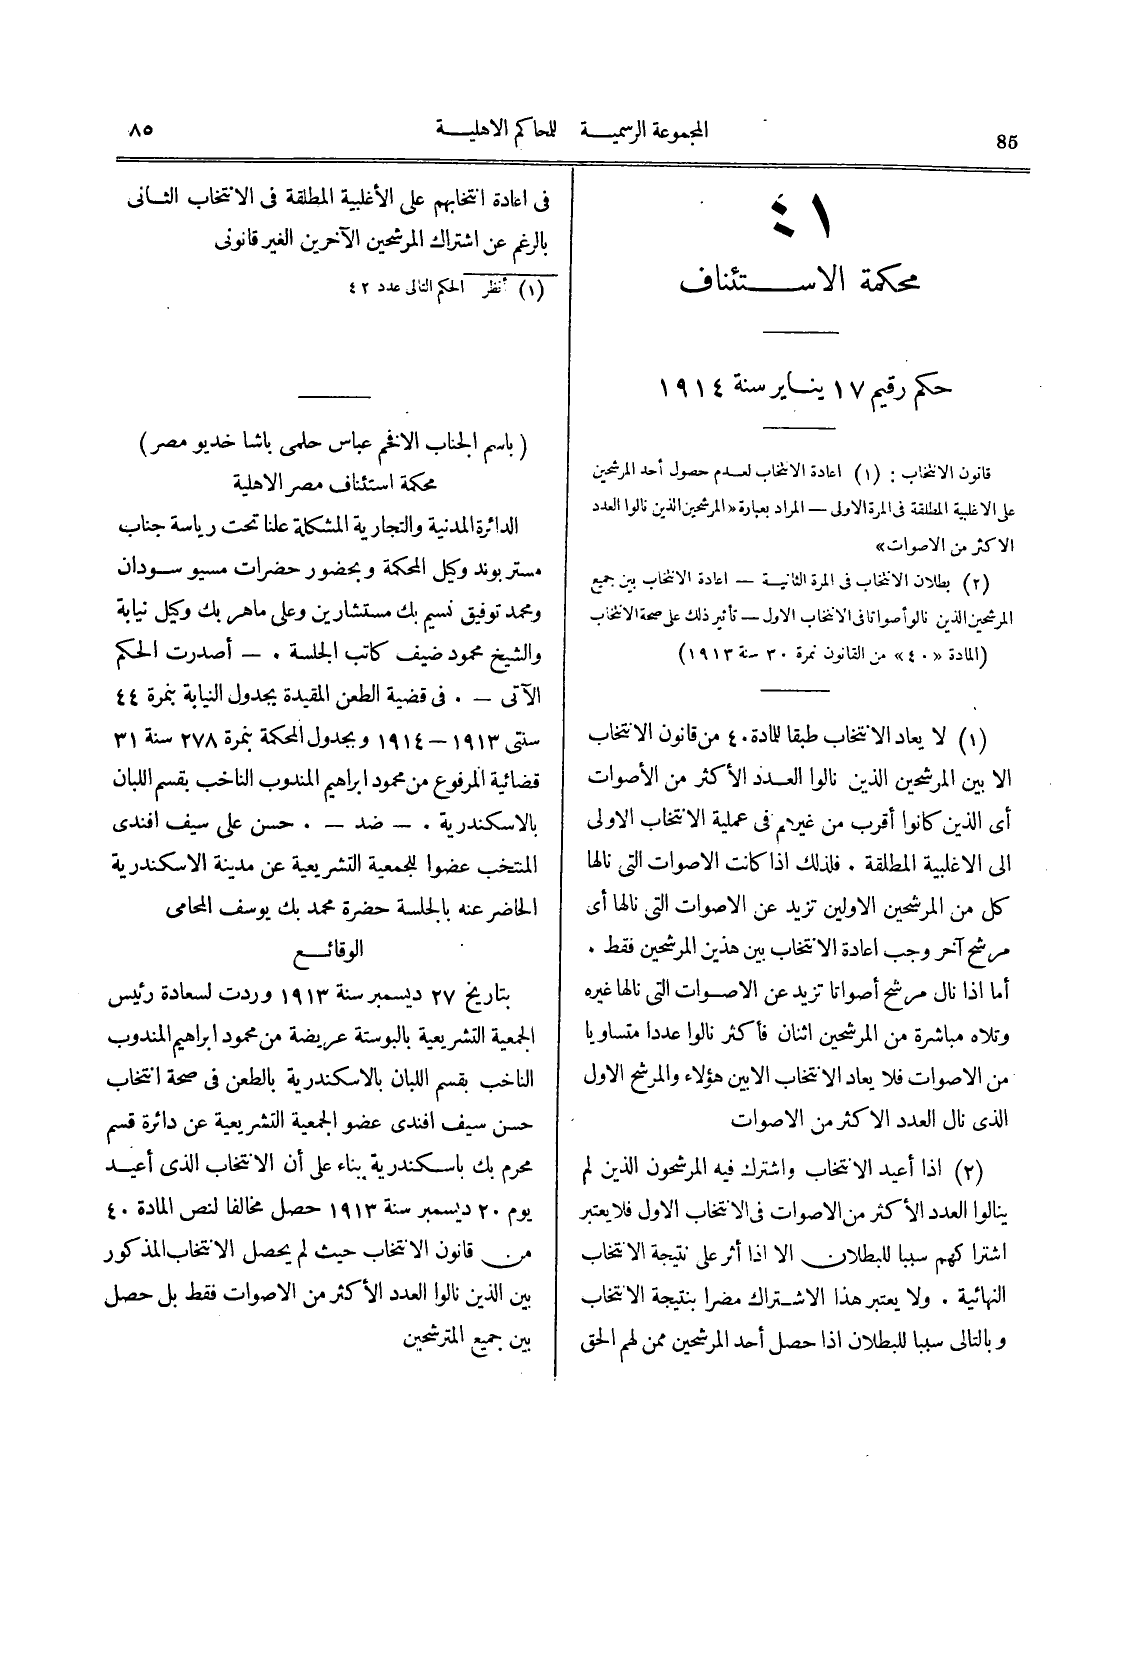 85
المجموعة الرسمية للمحاكم الاهلية
٨٥
٤١
محكمة الاستئناف
حكم رقيم ١٧ يناير سنة ١٩١٤
قانون الانتخاب : (١) اعادة الانتخاب لعدم حصول أحد المرشحين
على الاغلبية المطلقة فى المرة الاولى — المراد بعبارة «المرشحين الذين نالوا العدد
الاكثر من الاصوات»
(٢) بطلان الانتخاب فى المرة الثانية — اعادة الانتخاب بين جميع
المرشحين الذين نالوا أصواتا فى الانتخاب الاول — تأثير ذلك على صحة الانتخاب
(المادة «٤٠» من القانون نمرة ٣٠ سنة ١٩١٣)
(١) لا يعاد الانتخاب طبقا للمادة ٤٠ من قانون الانتخاب
الا بين المرشحين الذين نالوا العدد الأكثر من الأصوات
أى الذين كانوا أقرب من غيرهم فى عملية الانتخاب الاولى
الى الاغلبية المطلقة . فلذلك اذا كانت الاصوات التى نالها
كل من المرشحين الاولين تزيد عن الاصوات التى نالها أى
مرشح آخر وجب اعادة الانتخاب بين هذين المرشحين فقط .
أما اذا نال مرشح أصواتا تزيد عن الاصوات التى نالها غيره
وتلاه مباشرة من المرشحين اثنان فأكثر نالوا عددا متساويا
من الاصوات فلا يعاد الانتخاب الابين هؤلاء والمرشح الاول
الذى نال العدد الاكثر من الاصوات
(٢) اذا أعيد الانتخاب واشترك فيه المرشحون الذين لم
ينالوا العدد الأكثر من الاصوات فى الانتخاب الاول فلا يعتبر
اشتراكهم سببا للبطلان الا اذا أثر على نتيجة الانتخاب
النهائية . ولا يعتبر هذا الاشتراك مضرا بنتيجة الانتخاب
وبالتالى سببا للبطلان اذا حصل أحد المرشحين ممن لهم الحق
فى اعادة انتخابهم على الأغلبية المطلقة فى الانتخاب الثانى
بالرغم عن اشتراك المرشحين الآخرين الغير قانونى
(١) أنظر الحكم التالى عدد ٤٢
( باسم الجناب الافخم عباس حلمى باشا خديو مصر)
محكمة استئناف مصر الاهلية
الدائرة المدنية والتجارية المشكلة علنا تحت رياسة جناب
مستر بوند وكيل المحكمة وبحضور حضرات مسيو سودان
ومحمد توفيق نسيم بك مستشارين وعلى ماهر بك وكيل نيابة
والشيخ محمود ضيف كاتب الجلسة . — أصدرت الحكم
الآتى — . فى قضية الطعن المقيدة بجدول النيابة بنمرة ٤٤
سنتى ١٩١٣ — ١٩١٤ وبجدول المحكمة بنمرة ٢٧٨ سنة ٣١
قضائية المرفوع من محمود ابراهيم المندوب الناخب بقسم اللبان
بالاسكندرية . — ضد — . حسن على سيف افندى
المنتخب عضوا للجمعية التشريعية عن مدينة الاسكندرية
الحاضر عنه بالجلسة حضرة محمد بك يوسف المحامى
الوقائع
بتاريخ ٢٧ ديسمبر سنة ١٩١٣ وردت لسعادة رئيس
الجمعية التشريعية بالبوستة عريضة من محمود ابراهيم المندوب
الناخب بقسم اللبان بالاسكندرية بالطعن فى صحة انتخاب
حسن سيف افندى عضو الجمعية التشريعية عن دائرة قسم
محرم بك باسكندرية بناء على أن الانتخاب الذى أعيد
يوم ٢٠ ديسمبر سنة ١٩١٣ حصل مخالفا لنص المادة ٤٠
من قانون الانتخاب حيث لم يحصل الانتخاب المذكور
بين الذين نالوا العدد الأكثر من الاصوات فقط بل حصل
بين جميع المترشحين